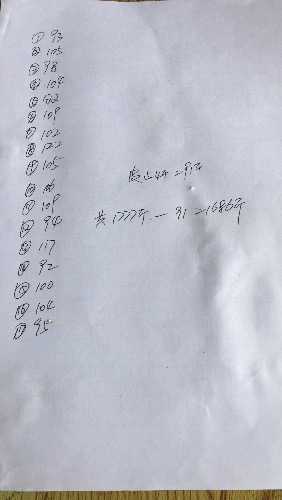 ① 93
② 105
③ 98
④ 104
⑤
⑥ 109
⑦ 102
⑧ 122
⑨ 105
⑩
⑪ 109
⑫ 94
⑬ 117
⑭ 92
⑮ 100
⑯ 104
⑰ 95
共1777斤 - 91 = 1686斤